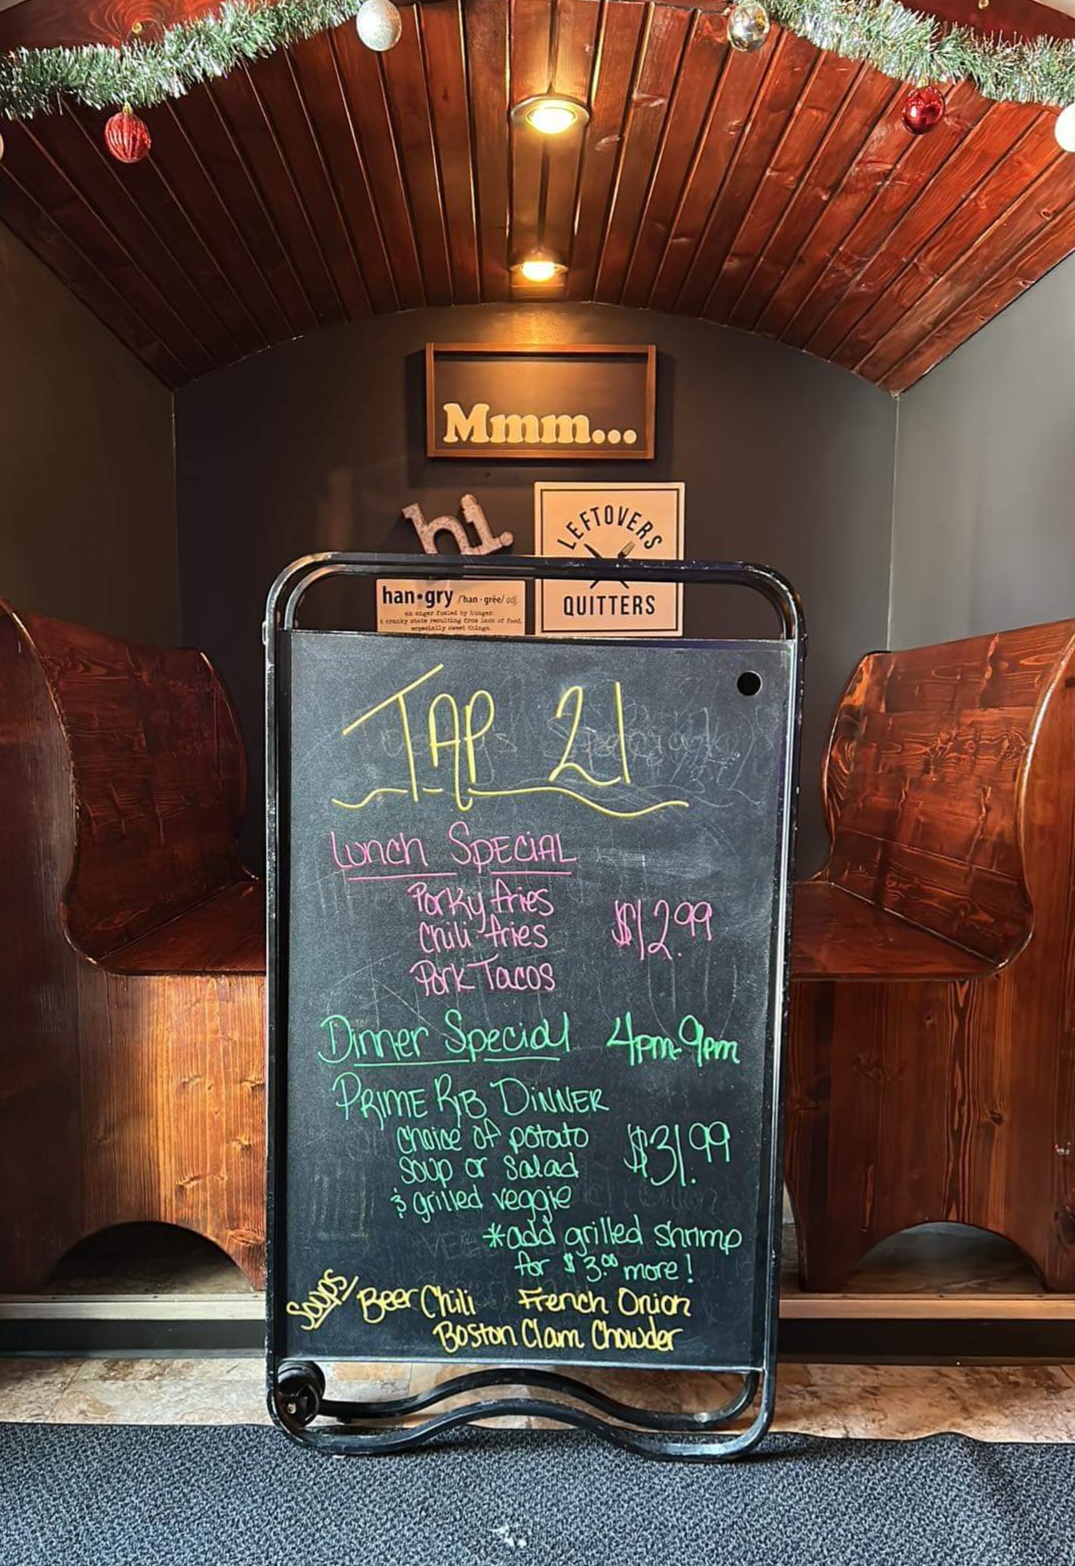 Mmm...
hi.
LEFTOVERS
QUITTERS
han•gry /han-grēe/ adj.
an anger fueled by hunger.
A cranky state resulting from lack of food,
especially sweet things.
TAP 21
Lunch Special
Porky fries
Chili fries
$12.99
Pork Tacos
Dinner Special 4pm-9pm
PRIME RIB DINNER
choice of potato
soup or salad
$31.99
& grilled veggie
*add grilled shrimp
for $3.00 more!
Soups/ Beer Chili French Onion
Boston Clam Chowder